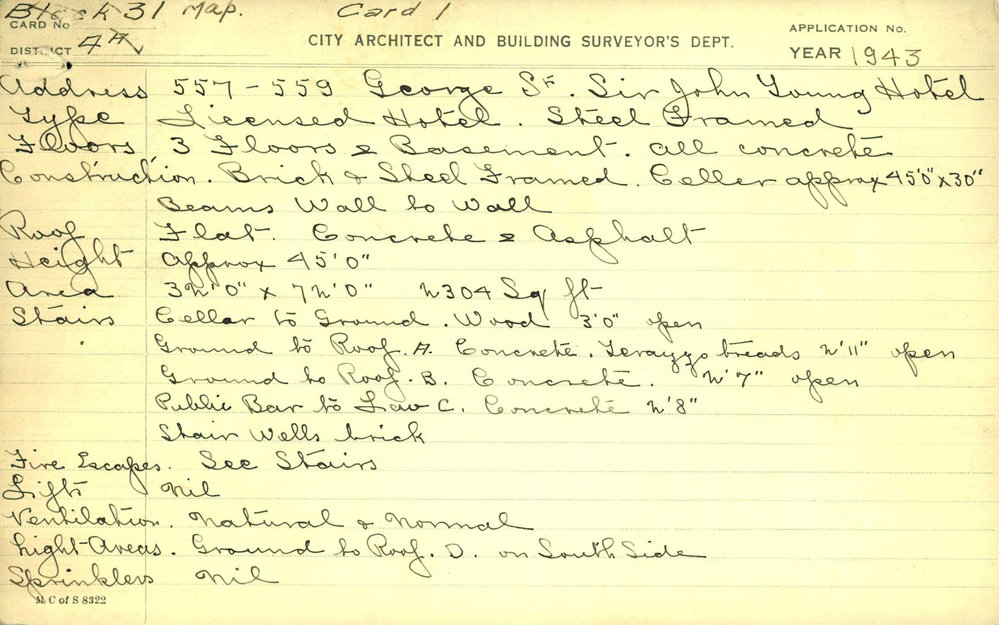 Block 31 Map. Card 1
CARD No
DISTRICT 4A
CITY ARCHITECT AND BUILDING SURVEYOR'S DEPT.
APPLICATION No.
YEAR 1943
Address 557-559 George St. Sir John Young Hotel
Type Licensed Hotel. Steel Framed
Floors 3 Floors & Basement. all concrete
Construction. Brick & Steel Framed. Celler approx 45'0" x 30"
Beams Wall to Wall
Roof Flat. Concrete & Asphalt
Height approx 45'0"
Area 32'0" x 72'0" 2304 Sq ft
Stairs Cellar to Ground. Wood 3'0" open
Ground to Roof. A. Concrete. Terazzo treads 2'11" open
Ground to Roof. B. Concrete. 2'7" open
Public Bar to Lav C. Concrete 2'8"
Stair Wells brick
Fire Escapes. See Stairs
Lifts Nil
Ventilation. Natural & Normal
Light Areas. Ground to Roof. D. on South Side
Sprinklers Nil
M. C of S 8322